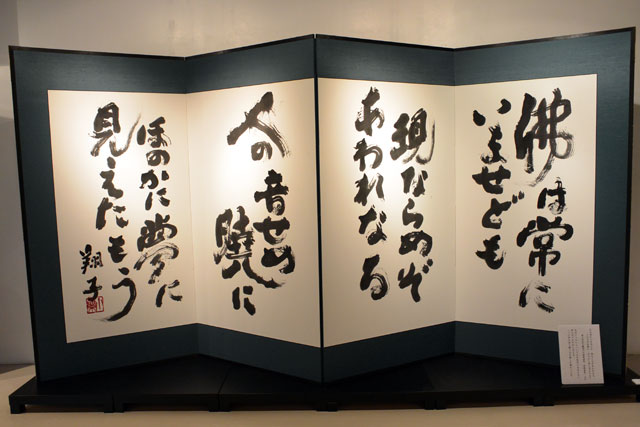 佛は常に
いませども
現ならぬぞ
あわれなる
人の音せぬ
暁に
ほのかに夢に
見えたもう
翔子